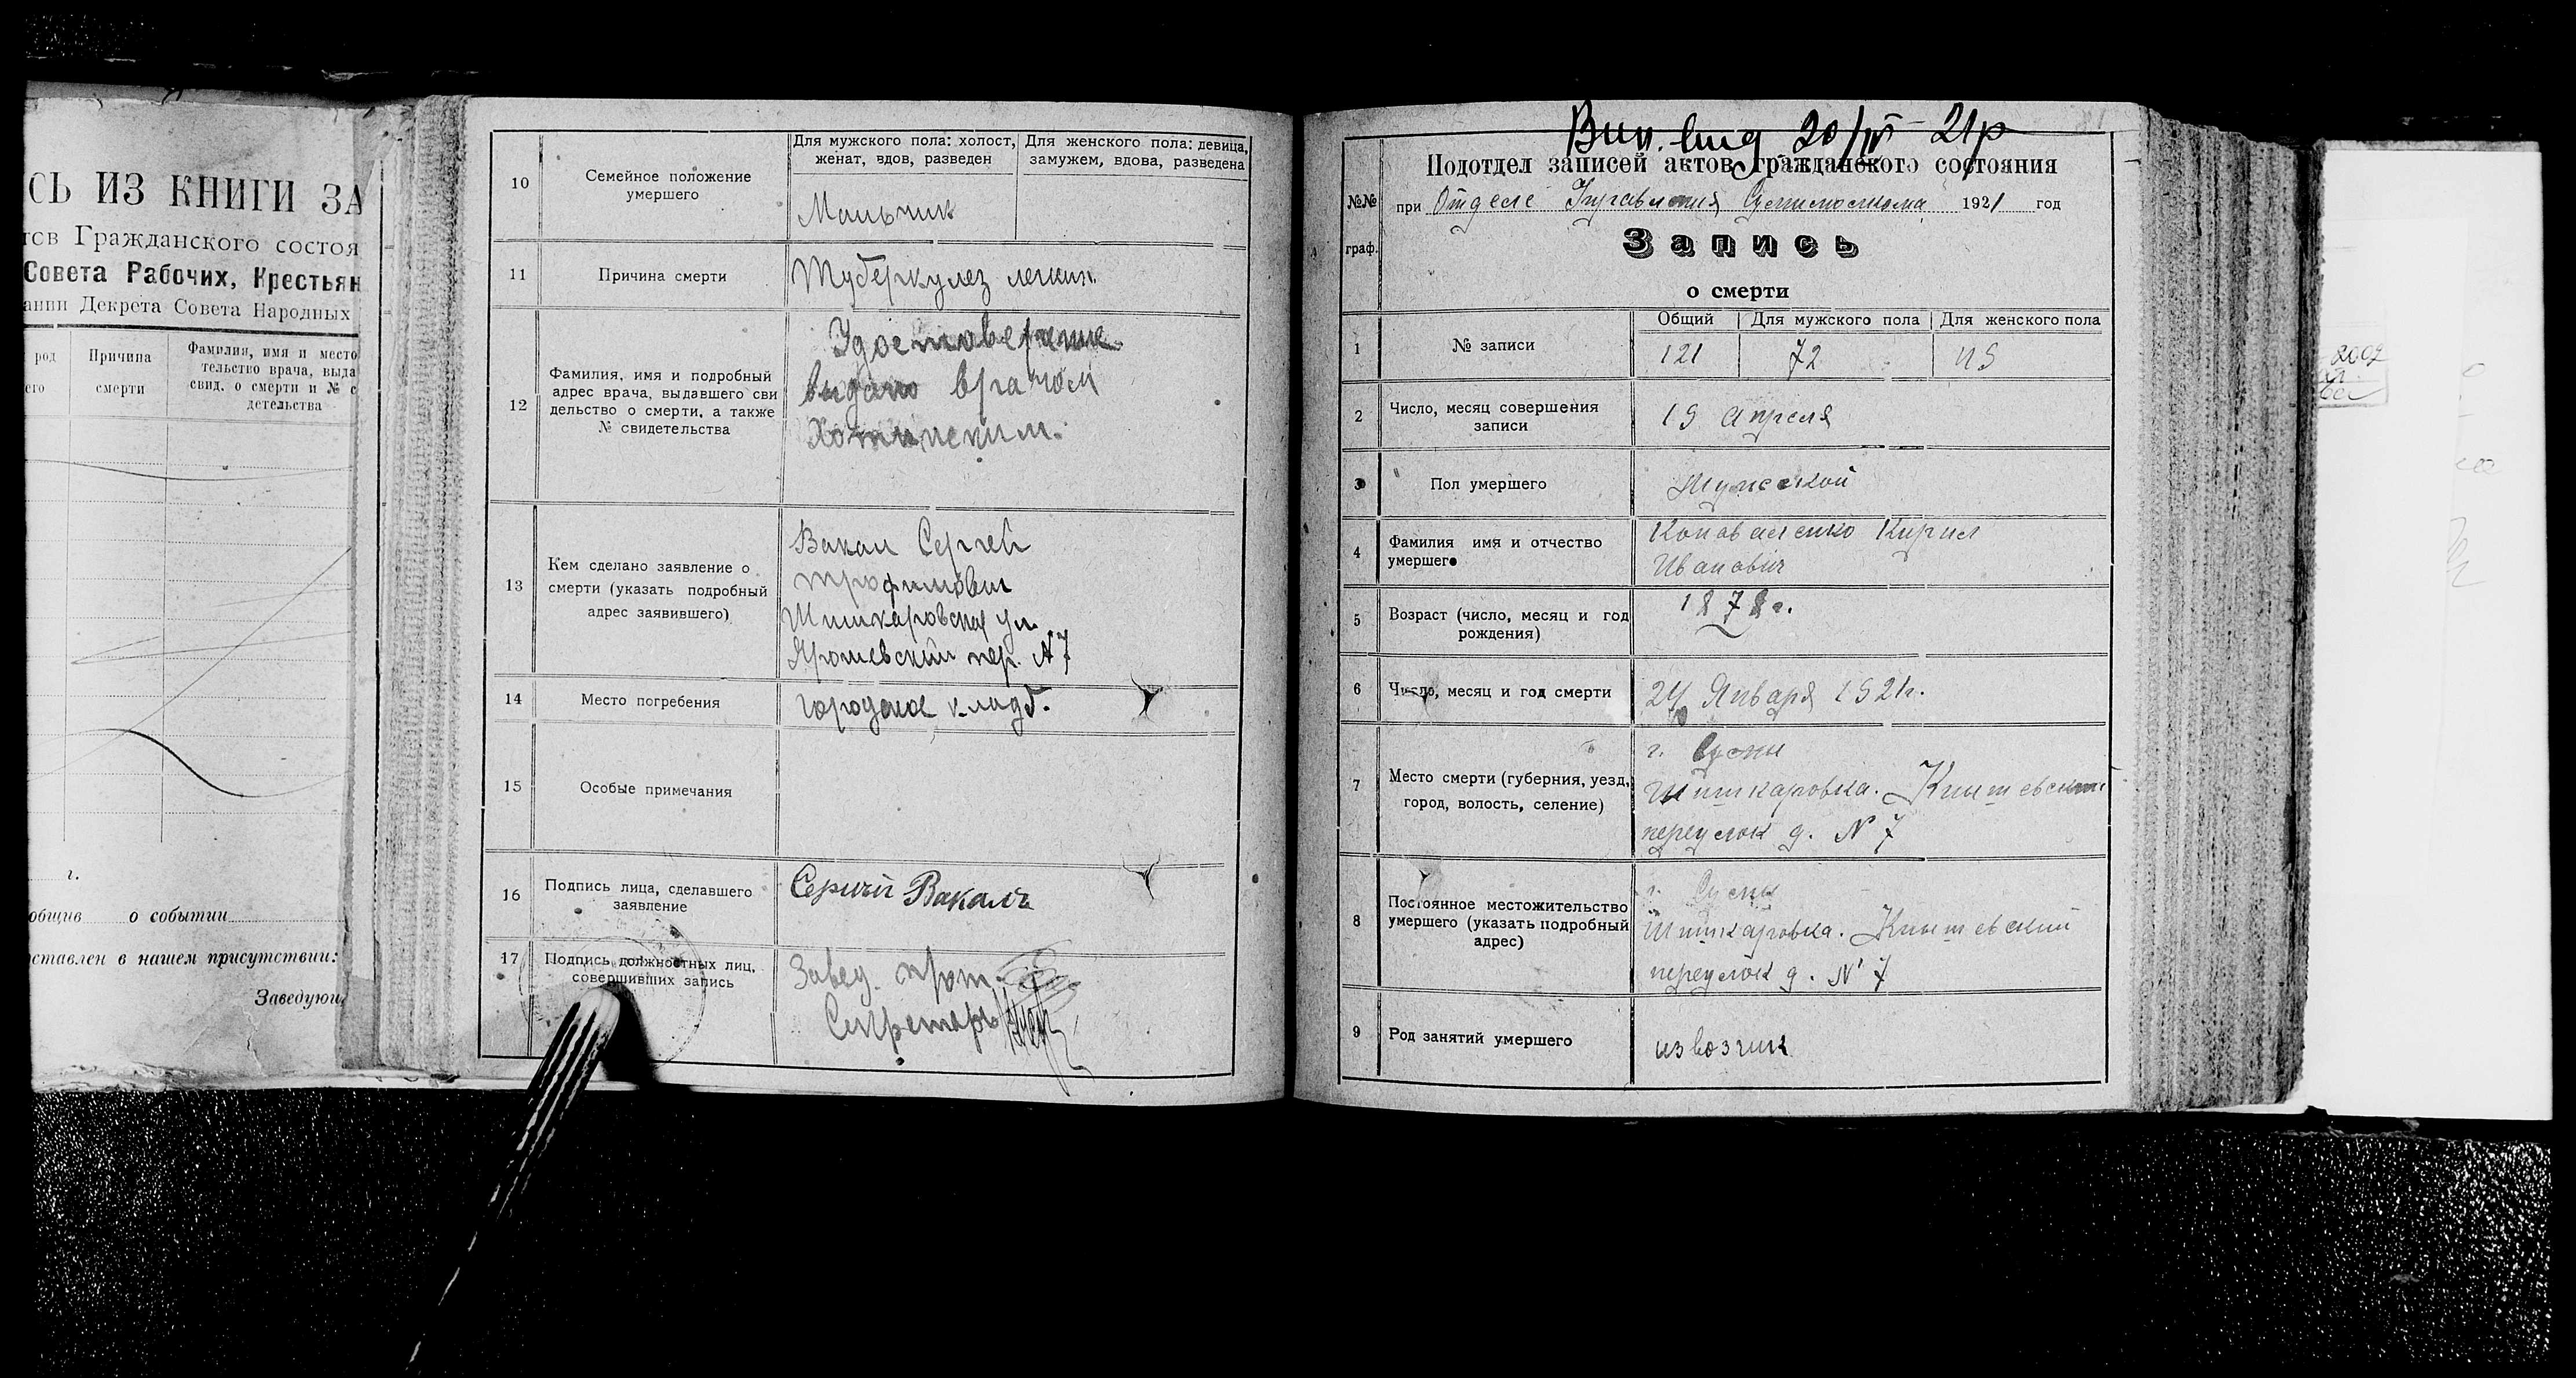 СЬ ИЗ КНИГИ ЗА
тов Гражданского состоя
Совета Рабочих, Крестьян
ании Декрета Совета Народных
род
его
Причина
смерти
Фамилия, имя и место
тельство врача, выда
свид. о смерти и № с
детельства
г.
общив о событии
оставлен в нашем присутствии:
Заведующ
10
Семейное положение
умершего
Для мужского пола: холост,
женат, вдов, разведен
Для женского пола: девица,
замужем, вдова, разведена
Мальчик
11
Причина смерти
Туберкулез легких
12
Фамилия, имя и подробный
адрес врача, выдавшего сви
дельство о смерти, а также
№ свидетельства
Удостоверение
выдано врачом
13
Кем сделано заявление о
смерти (указать подробный
адрес заявившего)
Вакал Сергей
Трофимович
Шишкаровская ул.
Ярошевский пер. №7
14
Место погребения
городское кладб.
15
Особые примечания
16
Подпись лица, сделавшего
заявление
Сергий Вакалъ
17
Подпись должностных лиц,
совершивших запись
Завед. прот.
Секретарь
21р
Подотдел записей актов гражданского состояния
№№
граф.
при Отделе Управления 1921 год
Запись
о смерти
1
№ записи
Общий
Для мужского пола
Для женского пола
121
72
49
2
Число, месяц совершения
записи
19 Апреля
3
Пол умершего
Мужской
4
Фамилия имя и отчество
умершего
Коноваленко Кирил
Иванович
5
Возраст (число, месяц и год
рождения)
1878 г.
6
Число, месяц и год смерти
24 Января 1921г.
7
Место смерти (губерния, уезд,
город, волость, селение)
г. Сумы
Шишкаровка. Кнышевский
переулок д. № 7
8
Постоянное местожительство
умершего (указать подробный
адрес)
г. Сумы
Шишкаровка. Кнышевский
переулок д. № 7
9
Род занятий умершего
извозчик
2002